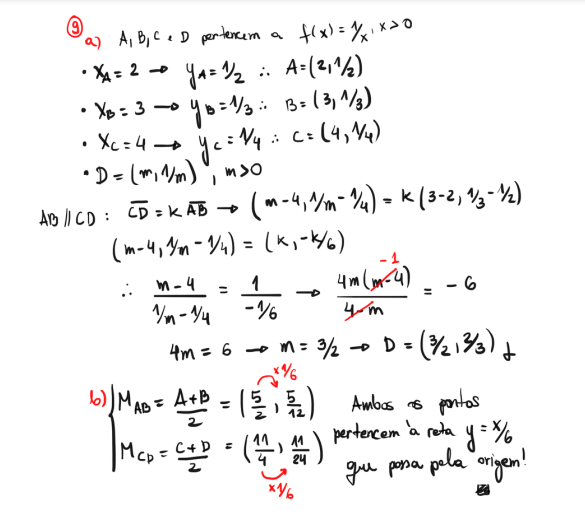 9
a) A, B, C e D pertencem a f(x) = 1/x, x > 0
• X_A = 2 → y_A = 1/2 ∴ A = (2, 1/2)
• X_B = 3 → y_B = 1/3 ∴ B = (3, 1/3)
• X_C = 4 → y_C = 1/4 ∴ C = (4, 1/4)
• D = (m, 1/m), m > 0
AB // CD : CD = K AB → (m-4, 1/m - 1/4) = K (3-2, 1/3 - 1/2)
(m-4, 1/m - 1/4) = (K, -K/6)
∴ (m-4)/(1/m - 1/4) = 1/(-1/6) → 4m(m-4)/(4-m) = -6
-1
4m = 6 → m = 3/2 → D = (3/2, 2/3)
x1/6
b) M_AB = (A+B)/2 = (5/2, 5/12) Ambos os pontos
M_CD = (C+D)/2 = (11/4, 11/24) pertencem à reta y = x/6
que passa pela origem!
x1/6